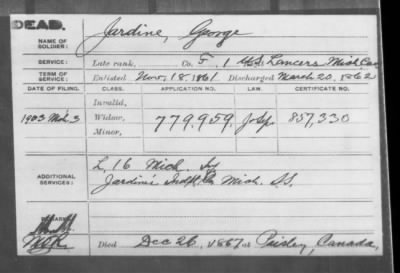 DEAD.
NAME OF SOLDIER: Jardine, George
SERVICE: Late rank, Co. F, 1 U.S. Lancers Mich Cav
TERM OF SERVICE: Enlisted Nov. 18, 1861 Discharged March 20, 1862
DATE OF FILING. CLASS. APPLICATION NO. LAW. CERTIFICATE NO.
Invalid,
1903 Mch. 3 Widow, 779,959 857,330
Minor,
ADDITIONAL SERVICES: L, 16 Mich. Inf
Jardine's Indpt. Co. Mich. S.S.
REMARKS:
Died Dec 26, 1867, at Paisley, Canada,